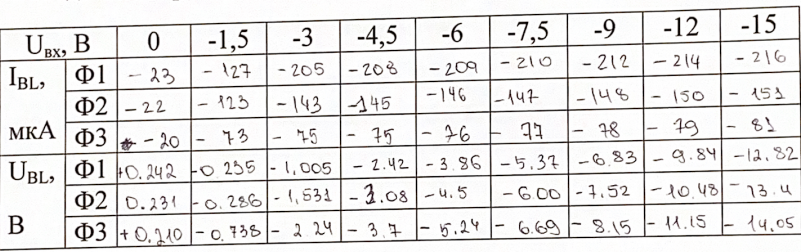 Uвх, В 0 -1,5 -3 -4,5 -6 -7,5 -9 -12 -15
IBL, мкА Ф1 -23 -127 -205 -208 -209 -210 -212 -214 -216
Ф2 -22 -123 -143 -145 -146 -147 -148 -150 -151
Ф3 -20 -73 -75 -75 -76 -77 -78 -79 -81
UBL, В Ф1 +0.242 -0.235 -1,005 -2.42 -3.86 -5,37 -6.83 -9.84 -12,82
Ф2 0.231 -0.286 -1,531 -3.08 -4.5 -6.00 -7,52 -10,48 -13.4
Ф3 +0,210 -0.738 -2.24 -3.7 -5.24 -6.69 -8.15 -11.15 -14,05